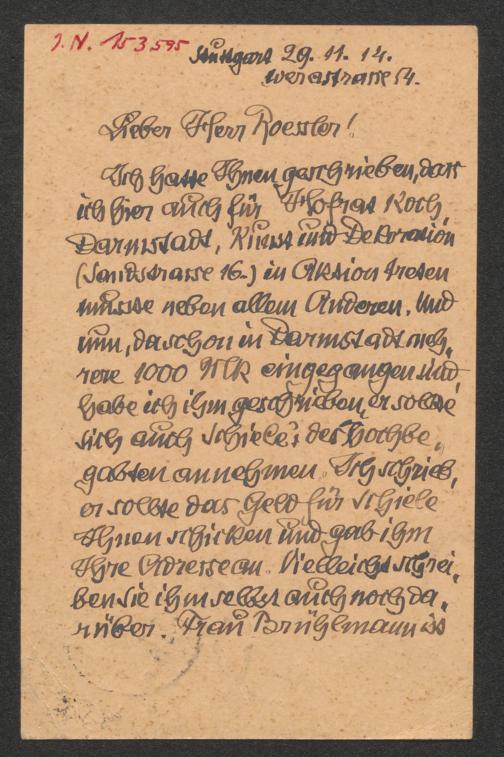 J.N. 153595
Stuttgart 29.11.14.
Werastrasse 54.
Lieber Herr Roessler!
Ich hatte Ihnen geschrieben, dass
ich hier auch für Hofrat Koch,
Darmstadt, Kunst und Dekoration
(Sandstrasse 16.) in Aktion treten
müsste neben allem Anderen. Und
nun, da schon in Darmstadt meh,
rere 1000 Mk eingegangen sind,
habe ich ihm geschrieben, er sollte
sich auch Schiele's des Hochbe,
gabten annehmen. Ich schrieb,
er sollte das Geld für Schiele
Ihnen schicken und gab ihm
Ihre Adresse an. Vielleicht schrei,
ben Sie ihm selbst auch noch da,
rüber. Frau Brühlmann ist